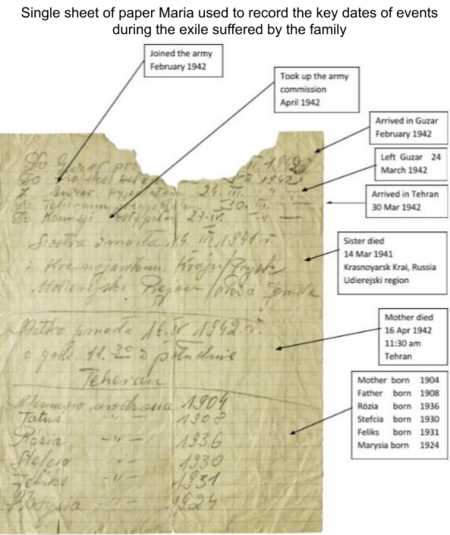 Single sheet of paper Maria used to record the key dates of events
during the exile suffered by the family
Joined the army
February 1942
Took up the army
commission
April 1942
Arrived in Guzar
February 1942
Left Guzar 24
March 1942
Arrived in Tehran
30 Mar 1942
Sister died
14 Mar 1941
Krasnoyarsk Krai, Russia
Udierejski region
Mother died
16 Apr 1942
11:30 am
Tehran
Mother born 1904
Father born 1908
Rózia born 1936
Stefcia born 1930
Feliks born 1931
Marysia born 1924
Do
Do
24. III.
30. III.
Do
Sostra zmarła 14. III. 1941 r.
Matka zmarła 16. IV 1942 r.
o godz. 11.
Teheran
urodzona 1904
Tatuś 1908
Rózia -"- 1936
Stefcia -"- 1930
Feliks -"- 1931
Marysia -"- 1924